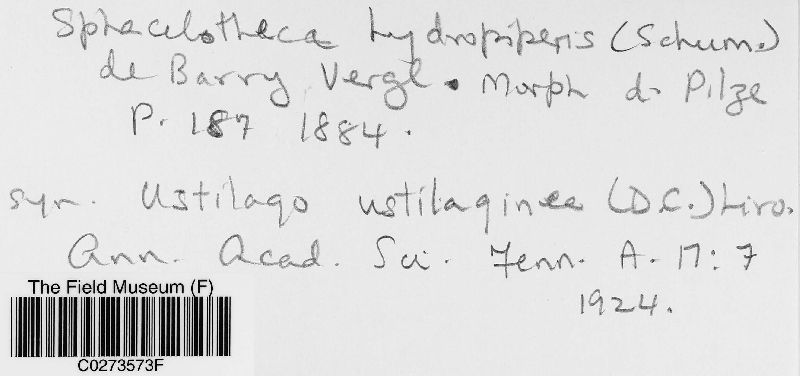 Sphacelotheca hydropiperis (Schum.)
de Barry Vergl. Morph d. Pilze
P. 187 1884.
syn. Ustilago ustilaginea (D.C.) Liro.
Ann. Acad. Sci. Fenn. A. 17: 7
1924.
The Field Museum (F)
C0273573F